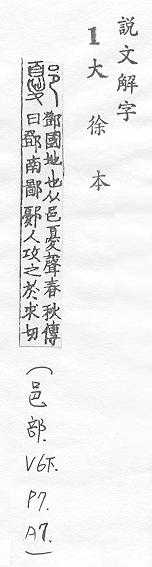 説文解字
1大徐本
鄾
鄧國地也从邑憂聲春秋傳
曰鄧南鄙鄾人攻之於求切
(邑部. V6下. P7. A7.)